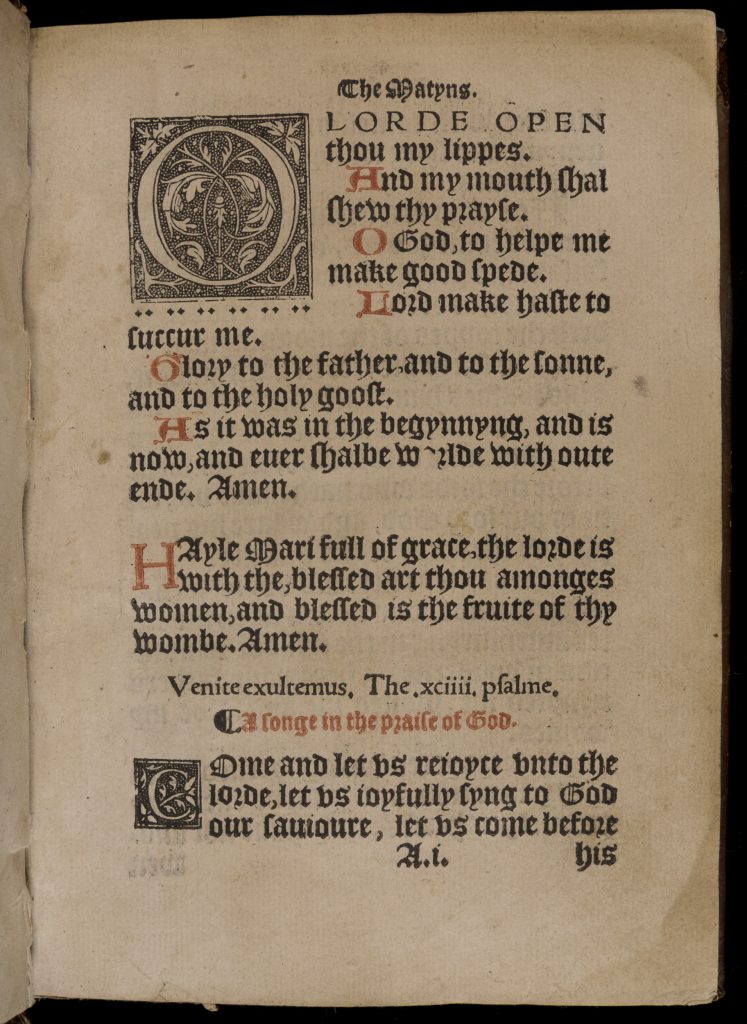 The Matyns.
O LORDE OPEN
thou my lippes.
And my mouth shal
shew thy prayse.
O God, to helpe me
make good spede.
Lord make haste to
succur me.
Glory to the father, and to the sonne,
and to the holy goost.
As it was in the begynnyng, and is
now, and euer shalbe w rlde with oute
ende. Amen.
HAyle Mari full of grace, the lorde is
with the, blessed art thou amonges
women, and blessed is the fruite of thy
wombe. Amen.
Venite exultemus. The .xciiii. psalme.
¶ A songe in the praise of God.
COme and let vs reioyce vnto the
lorde, let vs ioyfully syng to God
our sauioure, let vs come before
A.i. his